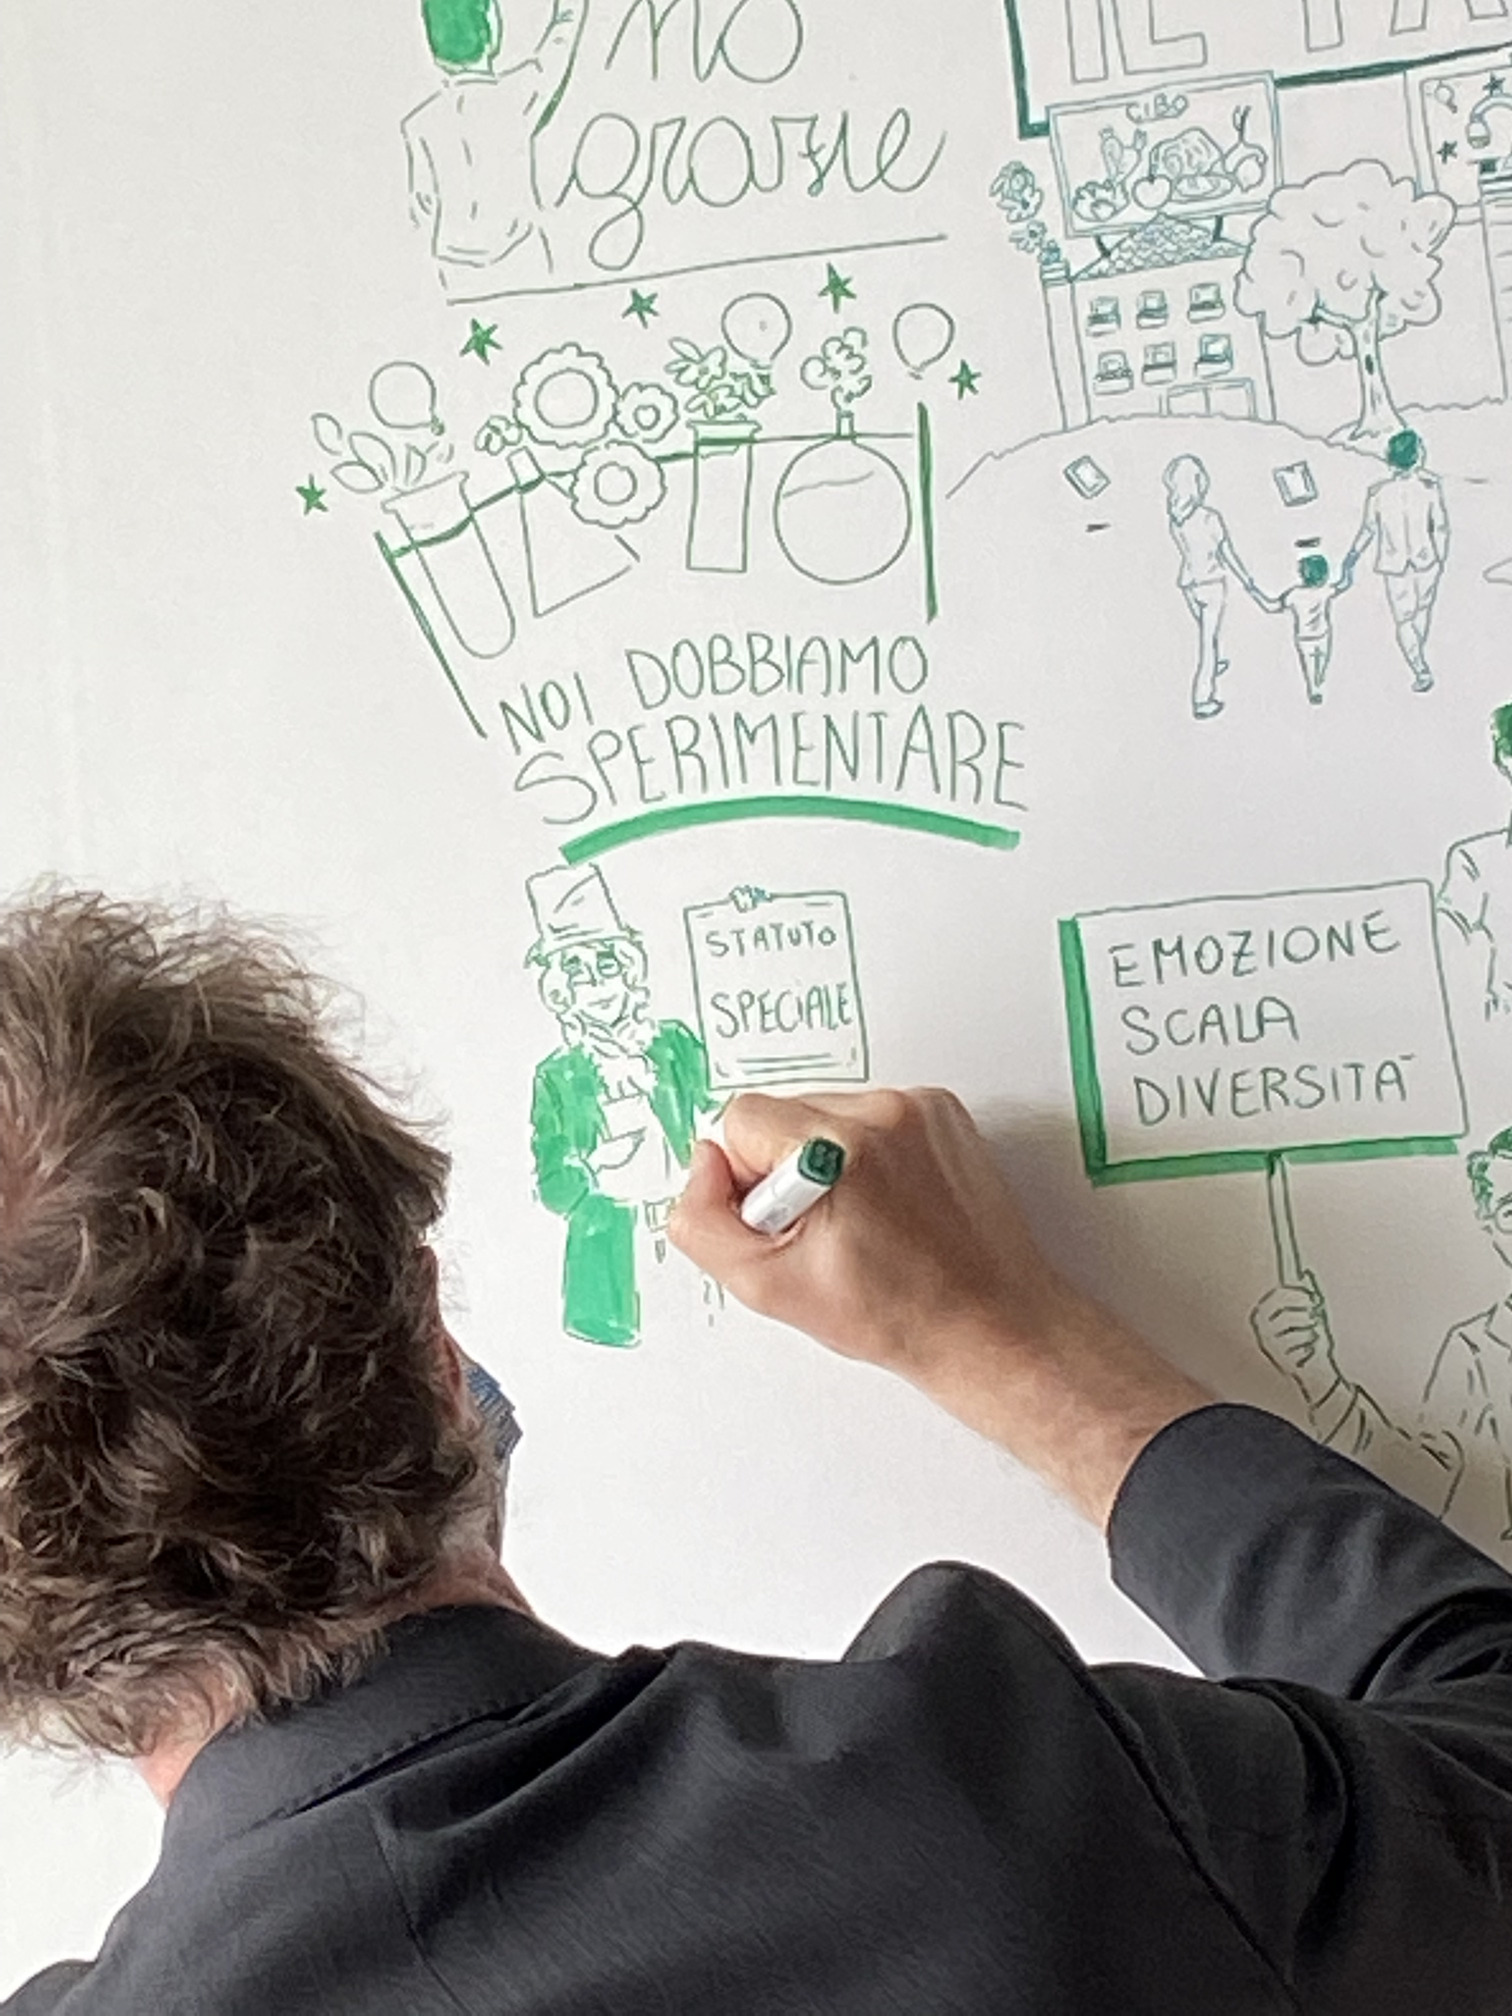 no
grazie
IL
CIBO
NOI DOBBIAMO
SPERIMENTARE
STATUTO
SPECIALE
EMOZIONE
SCALA
DIVERSITÀ